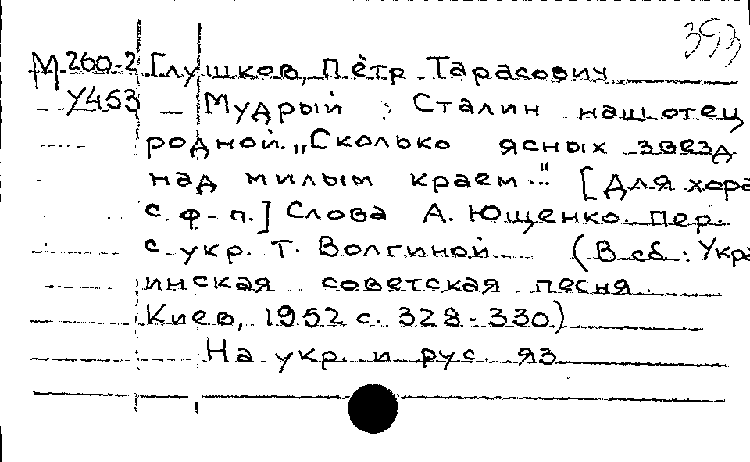 393
М 260-2 Глушков, Пётр Тарасович
У453 — Мудрый Сталин наш отец
родной. „Сколько ясных звезд
над милым краем..." [Для хора
с ф-п.] Слова А. Ющенко. Пер.
с укр. Т. Волгиной. (В сб.: Укра
инская советская песня.
Киев, 1952 с. 328-330)
На укр. и рус. яз